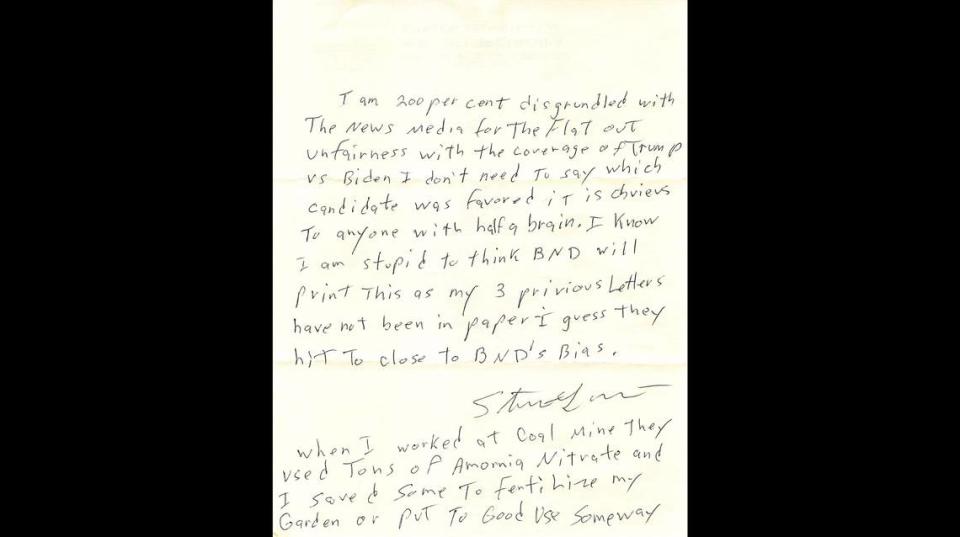 I am 200 per cent disgrundled with
The News Media for The Flat out
unfairness with the coverage of Trump
vs Biden I don't need To say which
candidate was favored iT is obvieus
To anyone with half a brain. I Know
I am stupid to think BND will
print This as my 3 privious Letters
have not been in paper I guess they
hiT To close to BND's Bias.
when I worked at Coal Mine They
used Tons of Amomia Nitrate and
I saved Some To Fertilize my
Garden or PUT To Good Use Someway